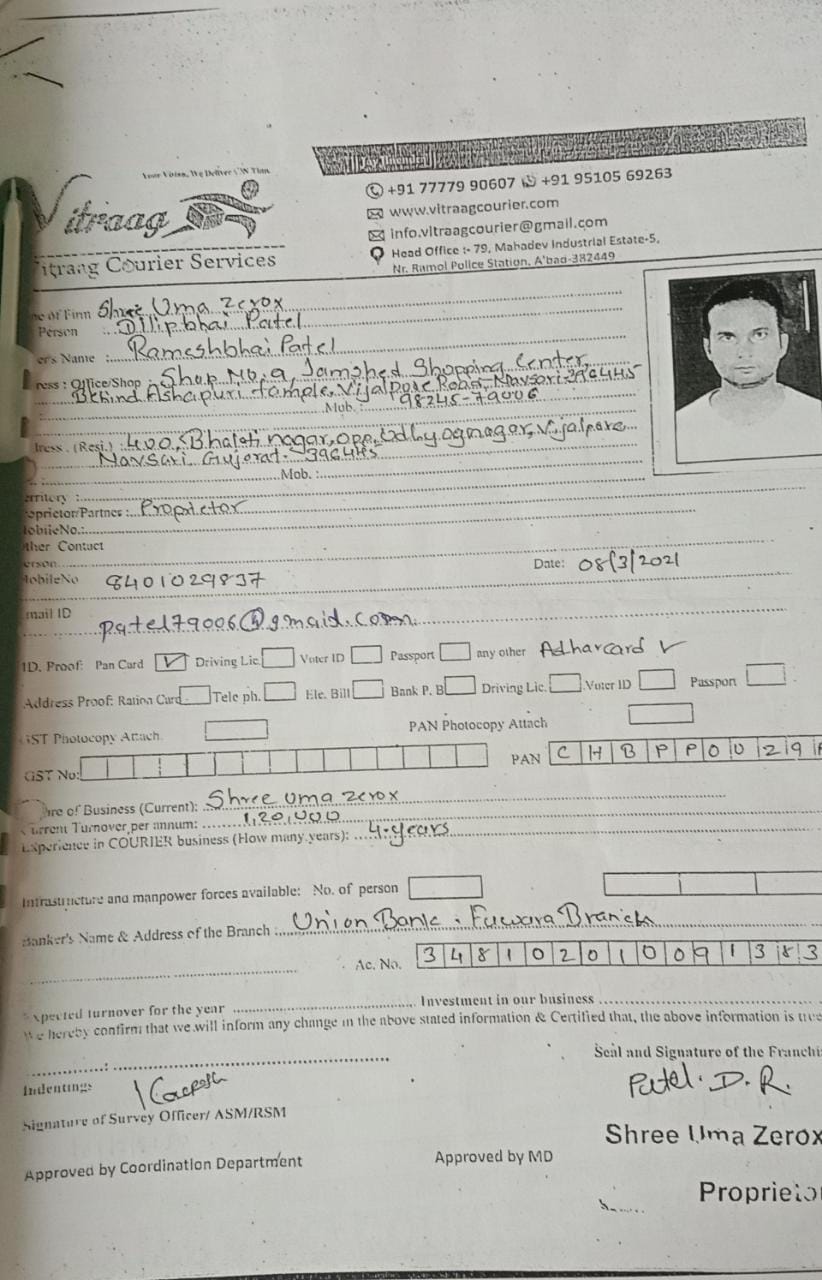 Your Vision, We Deliver ON Time
Vitraag
Vitraag Courier Services
Jay Jinendra
+91 77779 90607 +91 95105 69263
www.vitraagcourier.com
info.vitraagcourier@gmail.com
Head Office :- 79, Mahadev Industrial Estate-5,
Nr. Ramol Police Station, A'bad-382449
me of Firm Shree Uma Zerox
Person : Dilipbhai Patel
er's Name : Rameshbhai Patel
ress : Office/Shop : Shop No. 9, Jamshed Shopping Center,
Behind Ashapuri temple, Vijalpore Road, Navsari-396445
Mob. : 98245-79006
dress . (Resi.) : 400, Bhakti nagar, opp. Udhyognagar, Vijalpore
Navsari Gujarat- 396445
Mob. :
erritory :
roprietor/Partner : Proprietor
MobileNo.:
ther Contact
erson
MobileNo 8401029837 Date: 08/3/2021
mail ID
patel79006@gmaid.com
ID. Proof: Pan Card ✓ Driving Lic. Voter ID Passport any other Adharcard ✓
Address Proof: Ration Card Tele ph. Ele. Bill Bank P. B Driving Lic. Voter ID Passport
GST Photocopy Attach PAN Photocopy Attach
GST No: PAN C H B P P 0 0 2 9
ure of Business (Current): Shree uma zerox
Current Turnover per annum: 1,20,000
Experience in COURIER business (How many years): 4-years
Infrastructure and manpower forces available: No. of person
Banker's Name & Address of the Branch : Union Bank . Fuwara Branch
Ac. No. 3 4 8 1 0 2 0 1 0 0 9 1 3 8 3
Expected turnover for the year Investment in our business
We hereby confirm that we will inform any change in the above stated information & Certified that, the above information is true
Seal and Signature of the Franchi
Indentings
Patel. D. R.
Signature of Survey Officer/ ASM/RSM
Shree Uma Zerox
Approved by Coordination Department Approved by MD
Proprietor